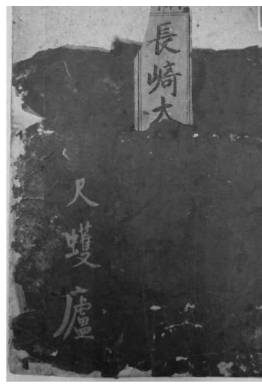 長崎大
尺蠖廬